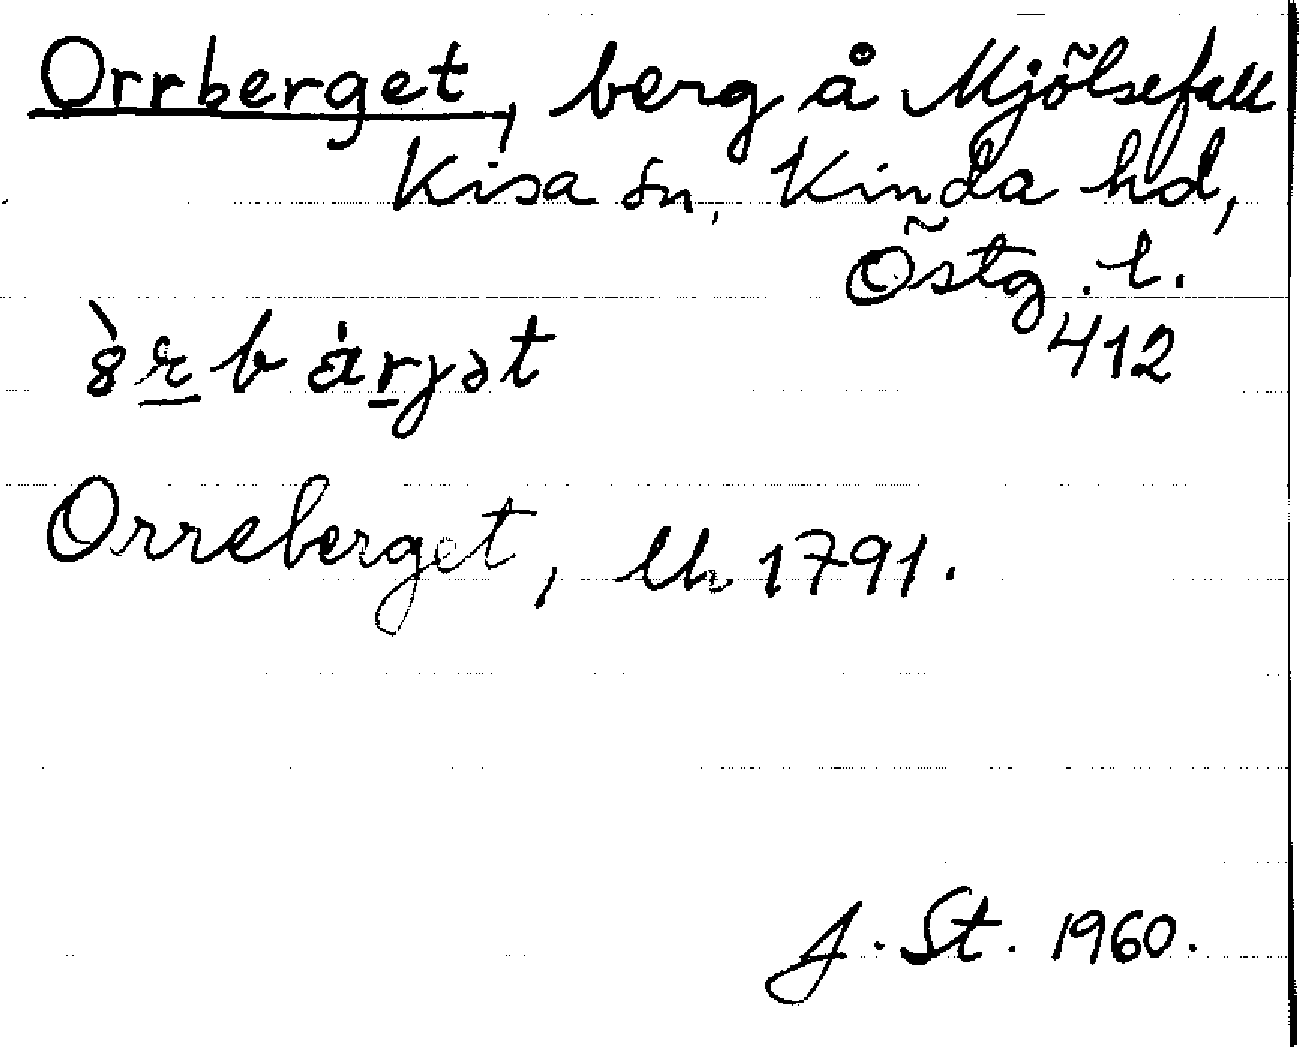 Orrberget, berg å Mjölsefall
Kisa sn, Kinda hd,
Östg. l.
412
Orreberget, lh 1791.
J. St. 1960.